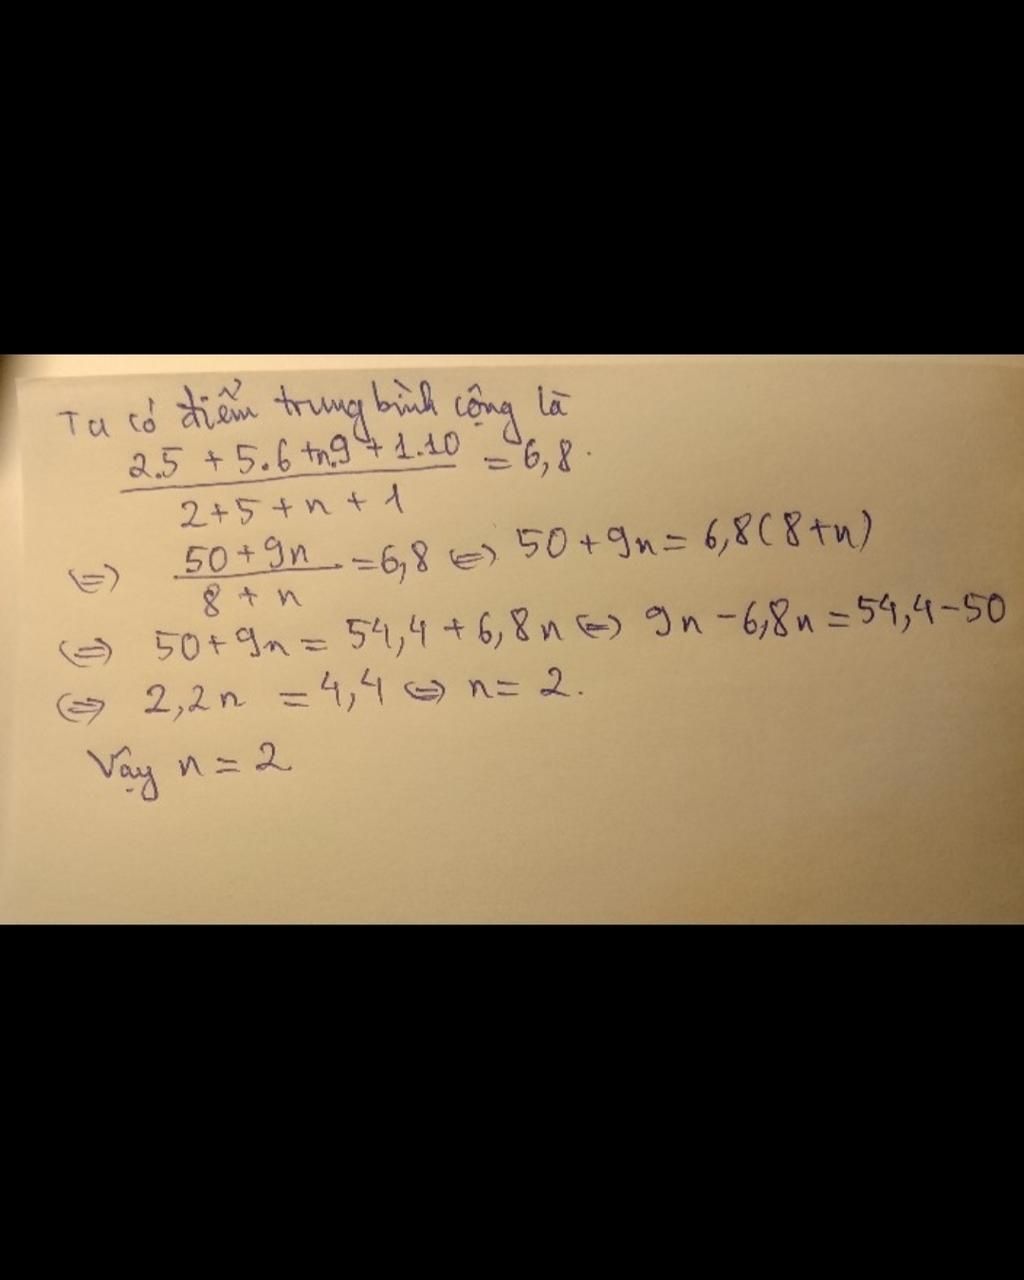 Ta có điểm trung bình cộng là
2.5 + 5.6 + n.9 + 1.10 = 6,8.
2+5+n+1
⇔ 50+9n = 6,8 ⇔ 50+9n = 6,8(8+n)
8+n
⇔ 50+9n = 54,4+6,8n ⇔ 9n-6,8n = 54,4-50
⇔ 2,2n = 4,4 ⇔ n = 2.
Vậy n = 2